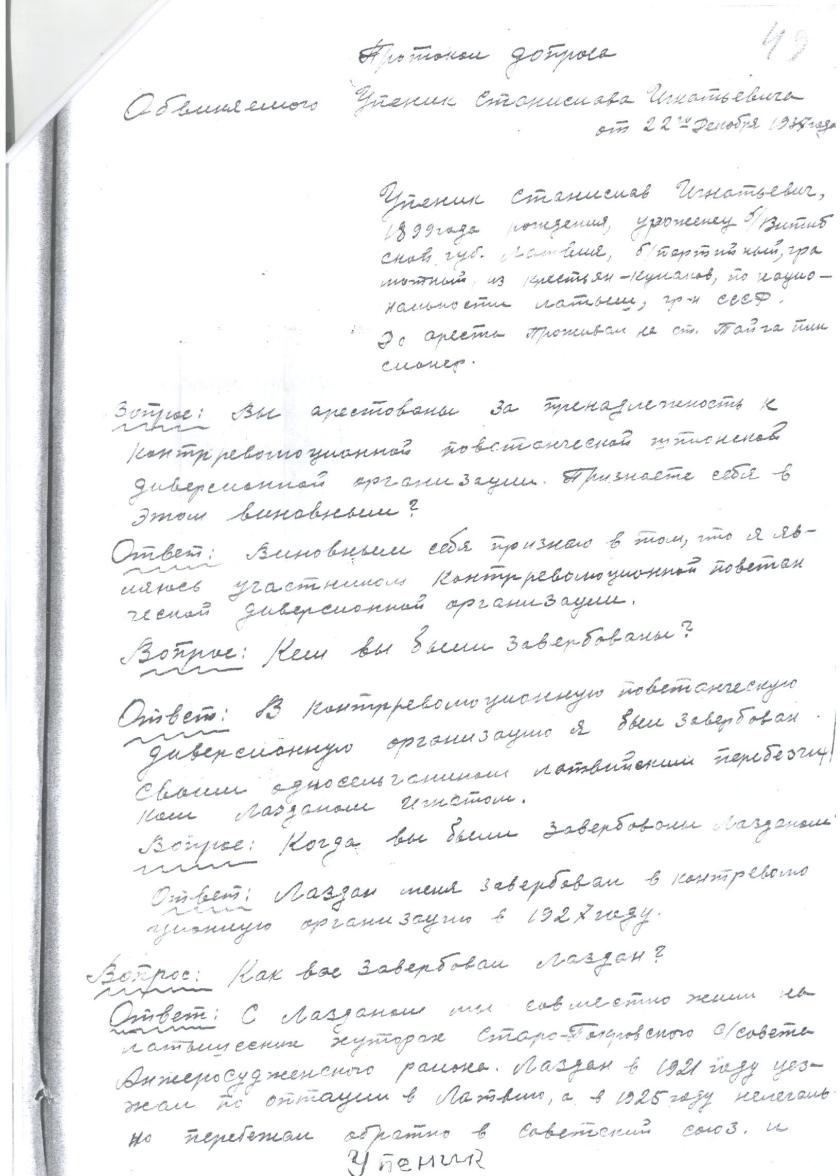 49
Протокол допроса
Обвиняемого Упеник Станислава Игнатьевича
от 22го декабря 1937 года
Упеник Станислав Игнатьевич,
1899 года рождения, уроженец б/Витеб
ской губ. Латвия, б/партийный, гра
мотный, из крестьян-кулаков, по нацио-
нальности латыш, гр-н СССР.
До ареста проживал на ст. Тайга пин
сионер.
Вопрос: Вы арестованы за пренадлежность к
контрреволюционной повстанческой шпионской
диверсионной организации. Признаете себя в
этом виновным?
Ответ: Виновным себя признаю в том, что я яв-
ляюсь участником контрреволюционной повстан
ческой диверсионной организации.
Вопрос: Кем вы были завербованы?
Ответ: В контрреволюционную повстанческую
диверсионную организацию я был завербован
своим односельчанином латвийским перебежчи
ком Лазданом Игнатом.
Вопрос: Когда вы были завербованы Лазданом
Ответ: Лаздан меня завербовал в контреволю
ционную организацию в 1927 году.
Вопрос: Как вас завербовал Лаздан?
Ответ: С Лазданом мы совместно жили на
латышских хуторах Старо-Покровского с/совета
Анжеросудженского района. Лаздан в 1921 году уез-
жал по оптации в Латвию, а в 1925 году нелегаль
но перебежал обратно в советский союз. и
Упеник